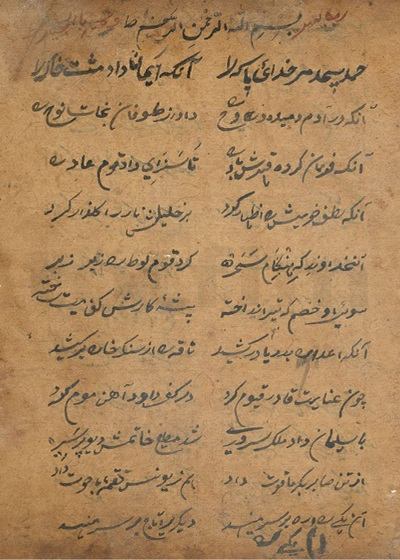 بسم الله الرحمن الرحیم
حمد بیحد مر خدای پاک را آنکه ایمان داد مشت خاک را
آنکه در آدم دمید او روح را داد از طوفان نجات نوح را
آنکه فرمان کرد قهرش باد را تا سزای داد قوم عاد را
آنکه لطف خویش را اظهار کرد بر خلیلش نار را گلزار کرد
آنخداوند که هنگام سحر کرد قوم لوط را زیر زبر
سوی او خصم که تیر انداخته پشهٔ کارش کفایت ساخته
آنکه اعدا را بدریا در کشید ناقه را از سنک خارا بر کشید
چون عنایت قادر قیوم کرد در کف داود آهن موم کرد
با سلیمان داد ملک سروری شد مطیع خاتمش دیو پری
از تن صابر بکرما قوت داد هم ز یونس لقمه با حوت داد
آن یکی را اره بر سر مینهد دیگری را تاج بر سر مینهد